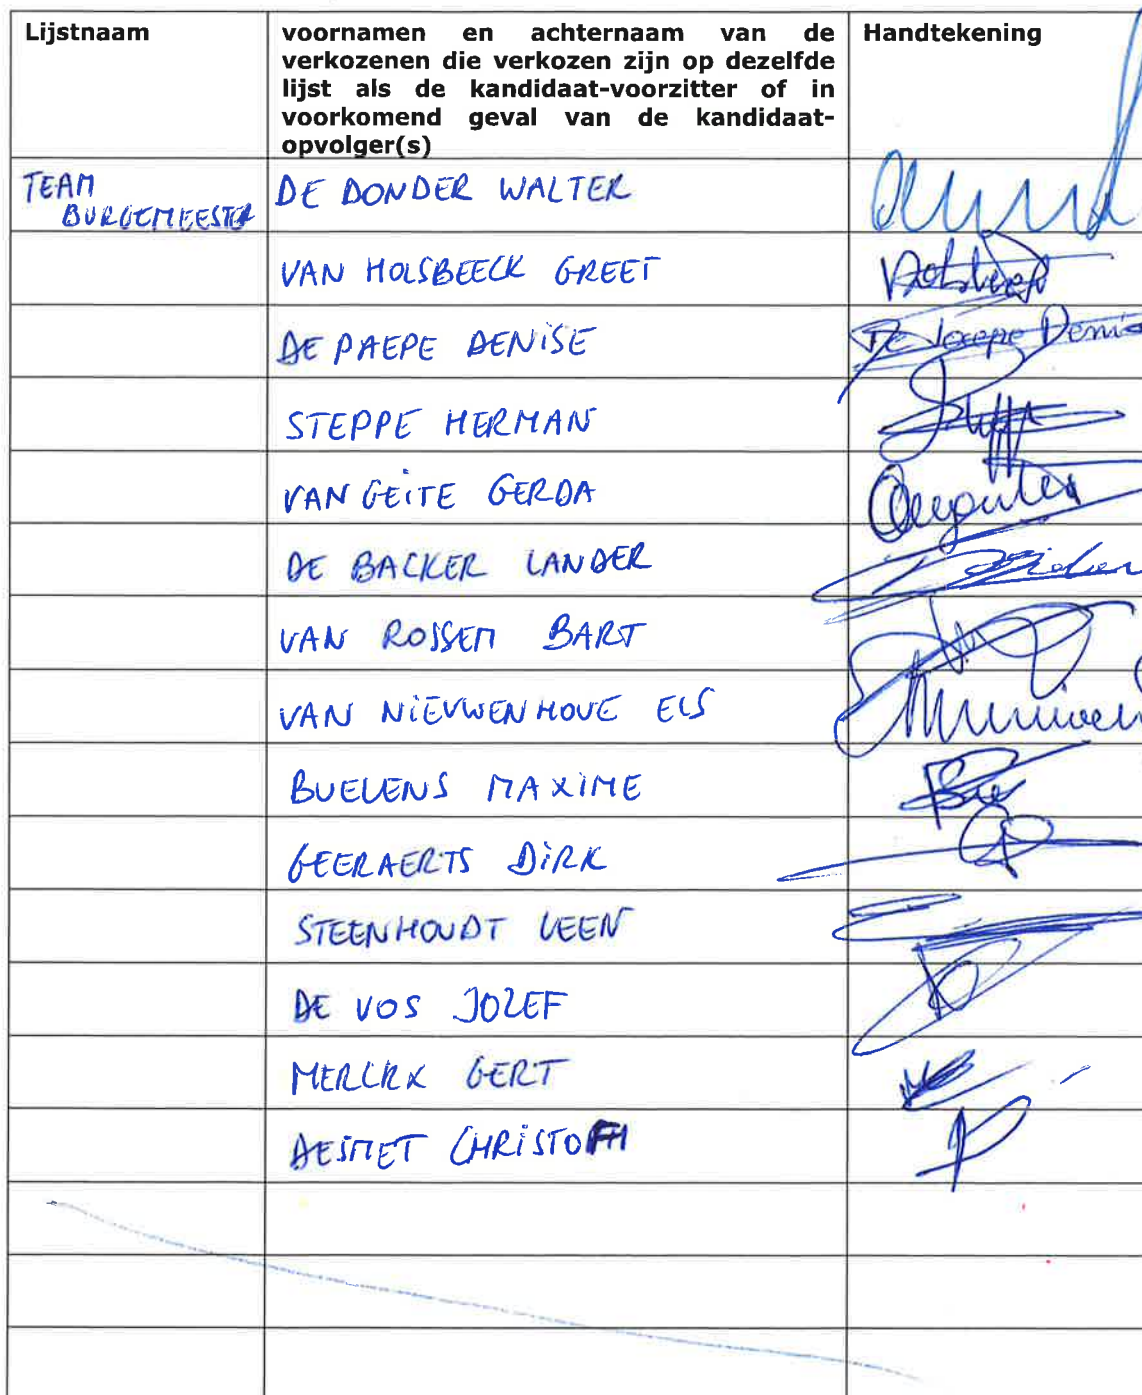 Lijstnaam
voornamen en achternaam van de
verkozenen die verkozen zijn op dezelfde
lijst als de kandidaat-voorzitter of in
voorkomend geval van de kandidaat-
opvolger(s)
Handtekening
TEAM
BURGEMEESTER
DE DONDER WALTER
VAN HOLSBEECK GREET
DE PAEPE DENISE
De Paepe Denis
STEPPE HERMAN
VAN GEITE GERDA
DE BACKER LANDER
VAN ROSSEM BART
VAN NIEUWENHOVE ELS
BUELENS MAXIME
GEERAERTS DIRK
STEENHOUDT LEEN
DE VOS JOZEF
MERCKX GERT
DESMET CHRISTOFF